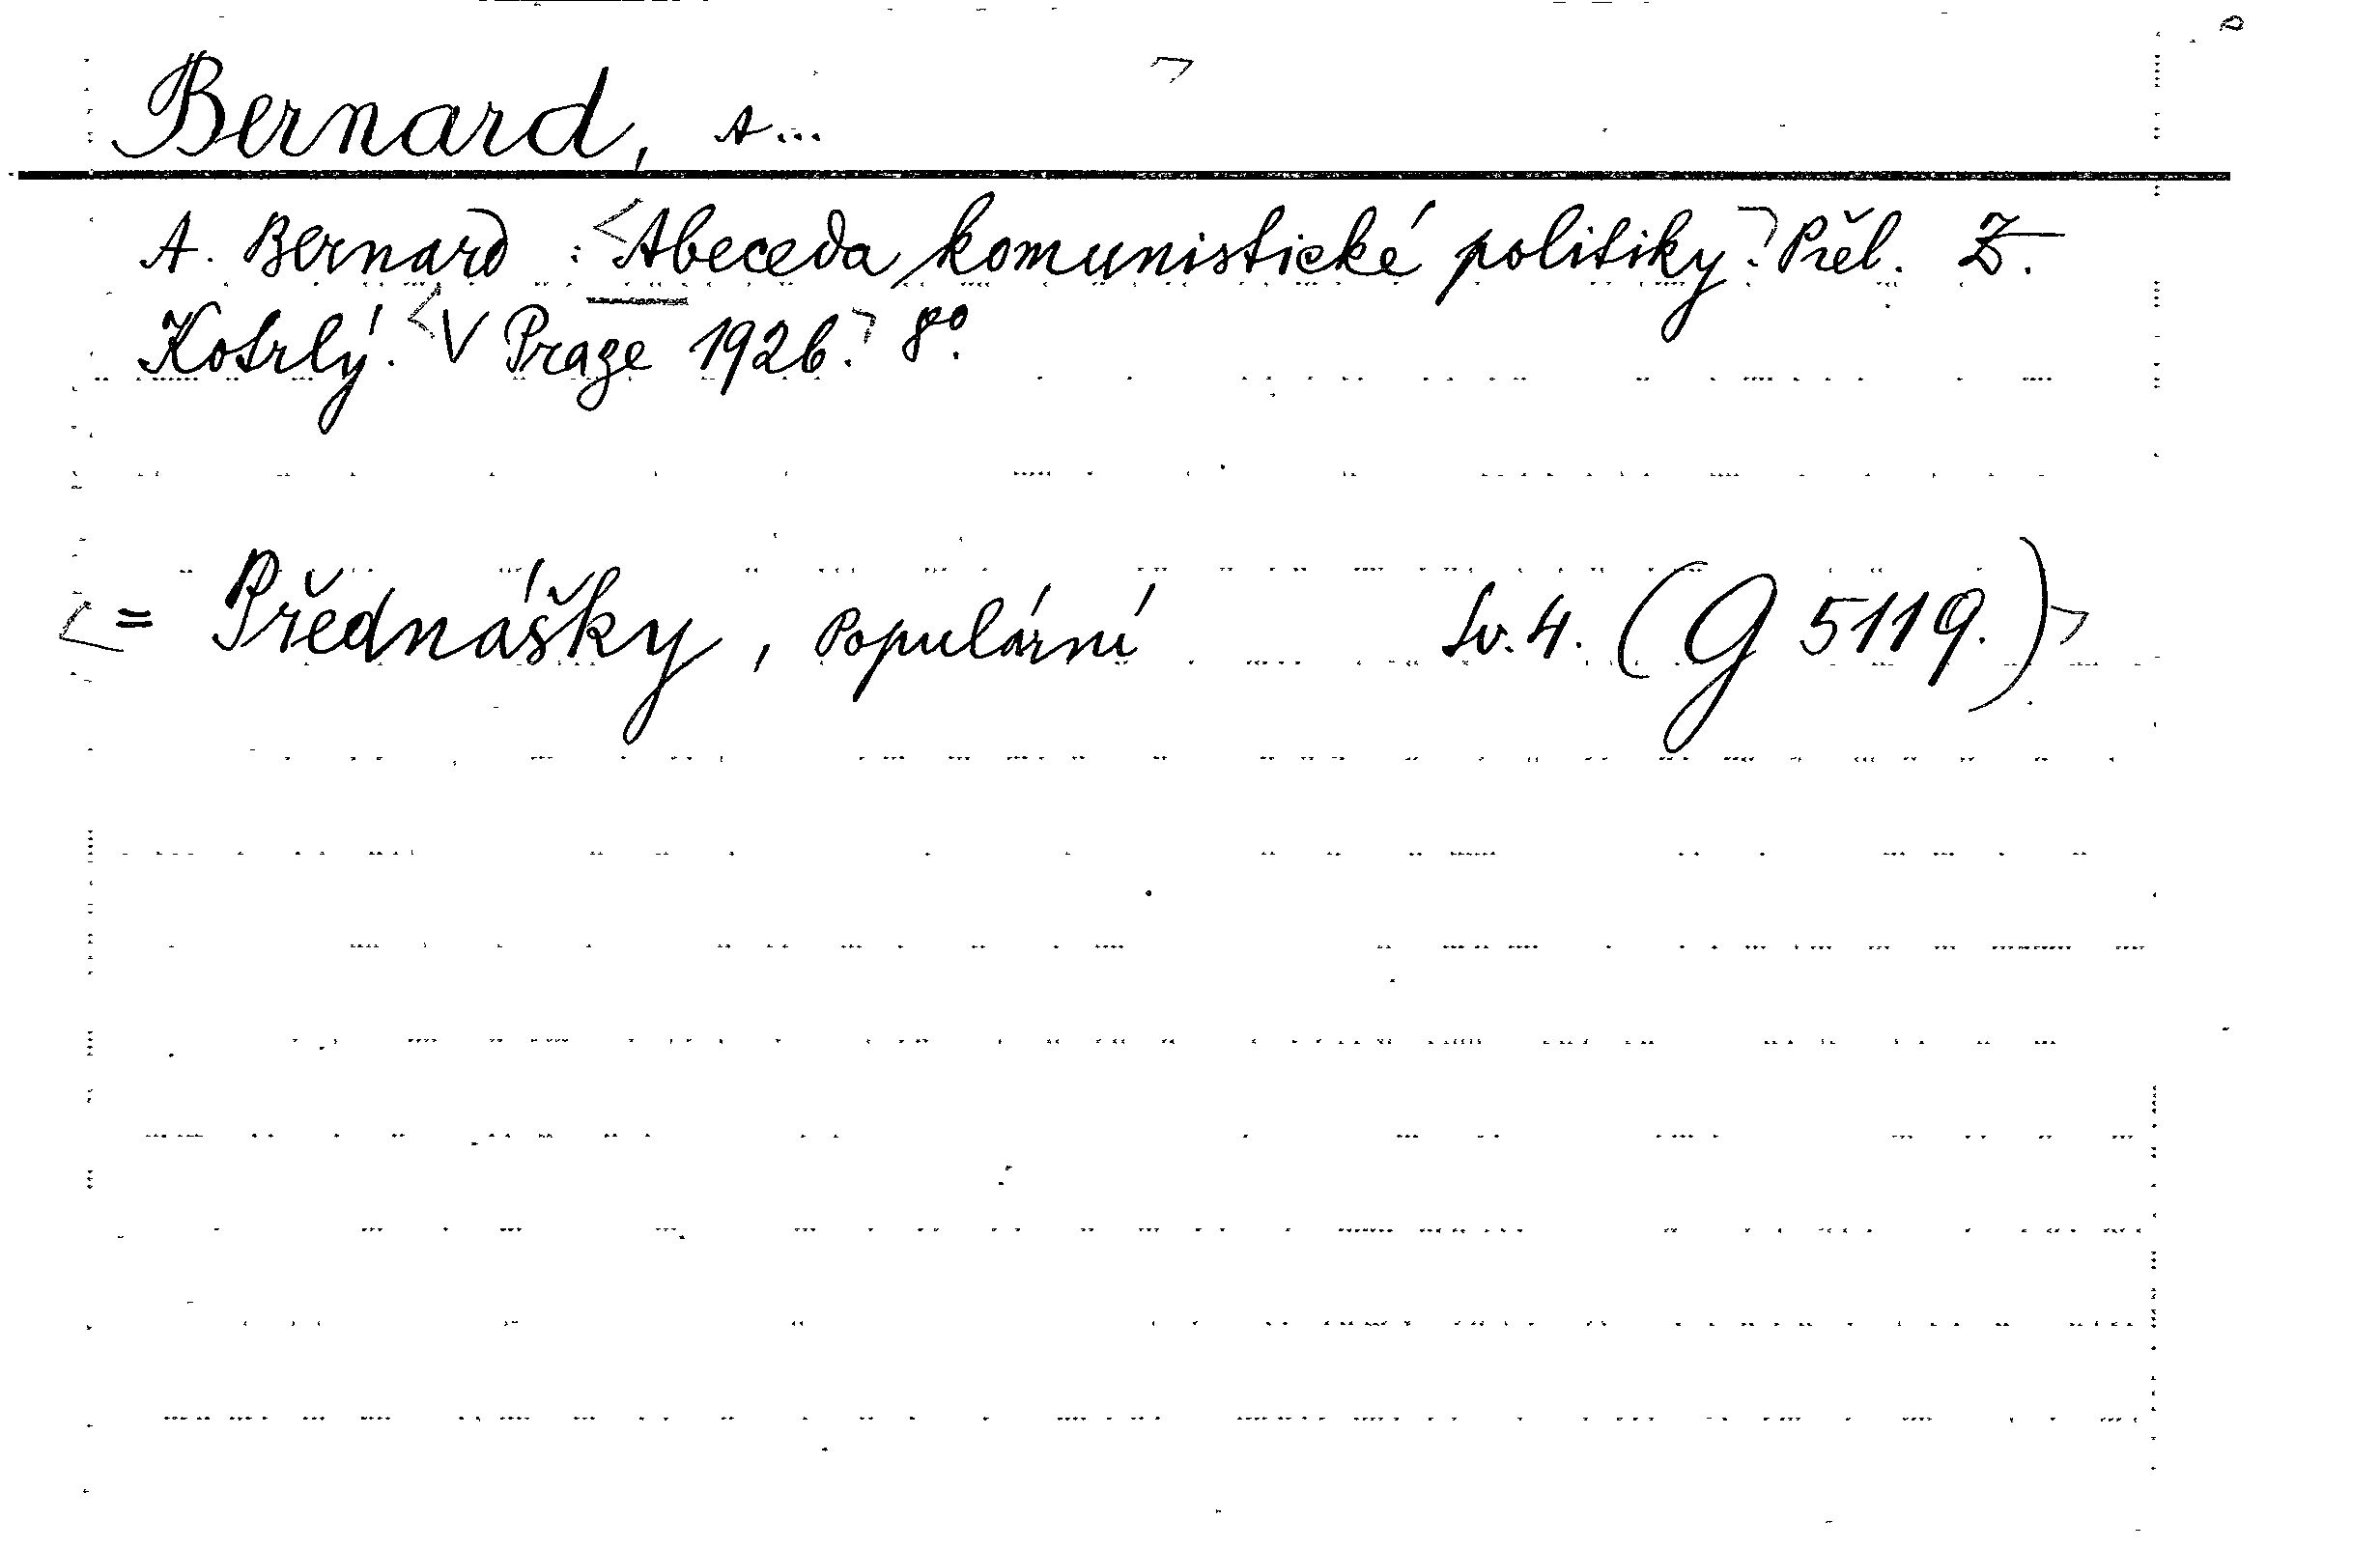 Bernard, A...
A. Bernard : Abeceda komunistické politiky. Přel. Z.
Kotrlý. V Praze 1926. 8º.
= Přednášky, Populární Sv. 4. (G 5119.)